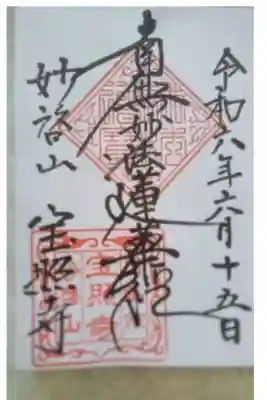 令和六年六月十五日
南無妙法蓮華経
妙啓山
宝照寺